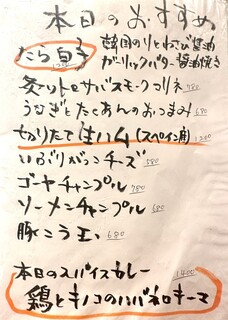 本日のおすすめ
たら白子 韓国のりとわさび醤油
1200 ガーリックバター醤油焼き
炙りトロサバスモークマリネ 780
うなぎとたくあんのおつまみ 680
切りたて生ハム(スペイン産) 1200
いぶりがっこチーズ 580
ゴーヤチャンプル 780
ソーメンチャンプル 680
豚こう玉 680
本日のスパイスカレー 1400
鶏とキノコのハバネロキーマ